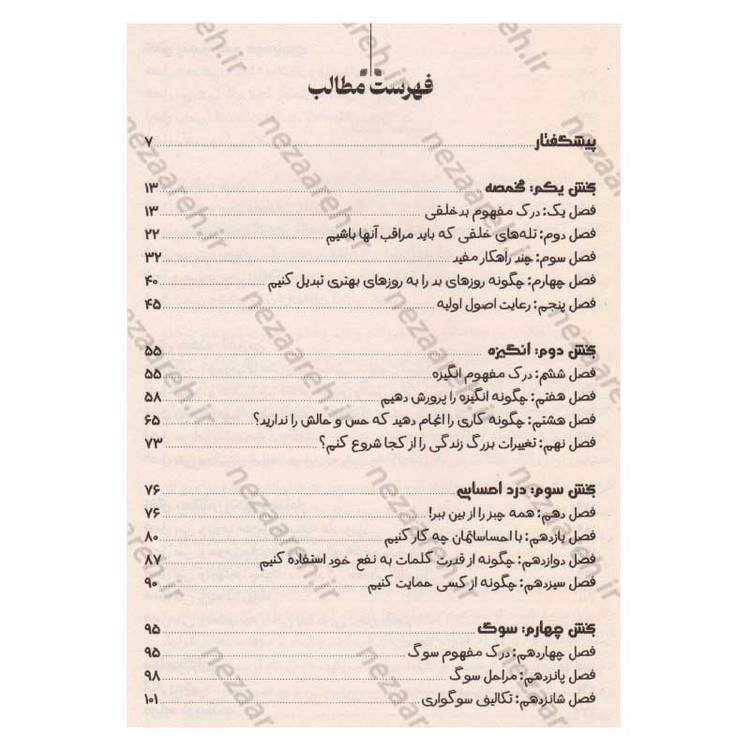 فهرست مطالب
پیشگفتار ۷
بخش یکم: مخمصه ۱۳
فصل یک: درک مفهوم بدخلقی ۱۳
فصل دوم: تله‌های خلقی که باید مراقب آنها باشیم ۲۲
فصل سوم: چند راهکار مفید ۳۲
فصل چهارم: چگونه روزهای بد را به روزهای بهتری تبدیل کنیم ۴۰
فصل پنجم: رعایت اصول اولیه ۴۵
بخش دوم: انگیزه ۵۵
فصل ششم: درک مفهوم انگیزه ۵۵
فصل هفتم: چگونه انگیزه را پرورش دهیم ۵۸
فصل هشتم: چگونه کاری را انجام دهید که حس و حالش را ندارید؟ ۶۵
فصل نهم: تغییرات بزرگ زندگی را از کجا شروع کنم؟ ۷۳
بخش سوم: درد احساسی ۷۶
فصل دهم: همه چیز را از بین ببر! ۷۶
فصل یازدهم: با احساساتمان چه کار کنیم ۸۰
فصل دوازدهم: چگونه از قدرت کلمات به نفع خود استفاده کنیم ۸۷
فصل سیزدهم: چگونه از کسی حمایت کنیم ۹۰
بخش چهارم: سوگ ۹۵
فصل چهاردهم: درک مفهوم سوگ ۹۵
فصل پانزدهم: مراحل سوگ ۹۸
فصل شانزدهم: تکالیف سوگواری ۱۰۱
nezaareh.ir